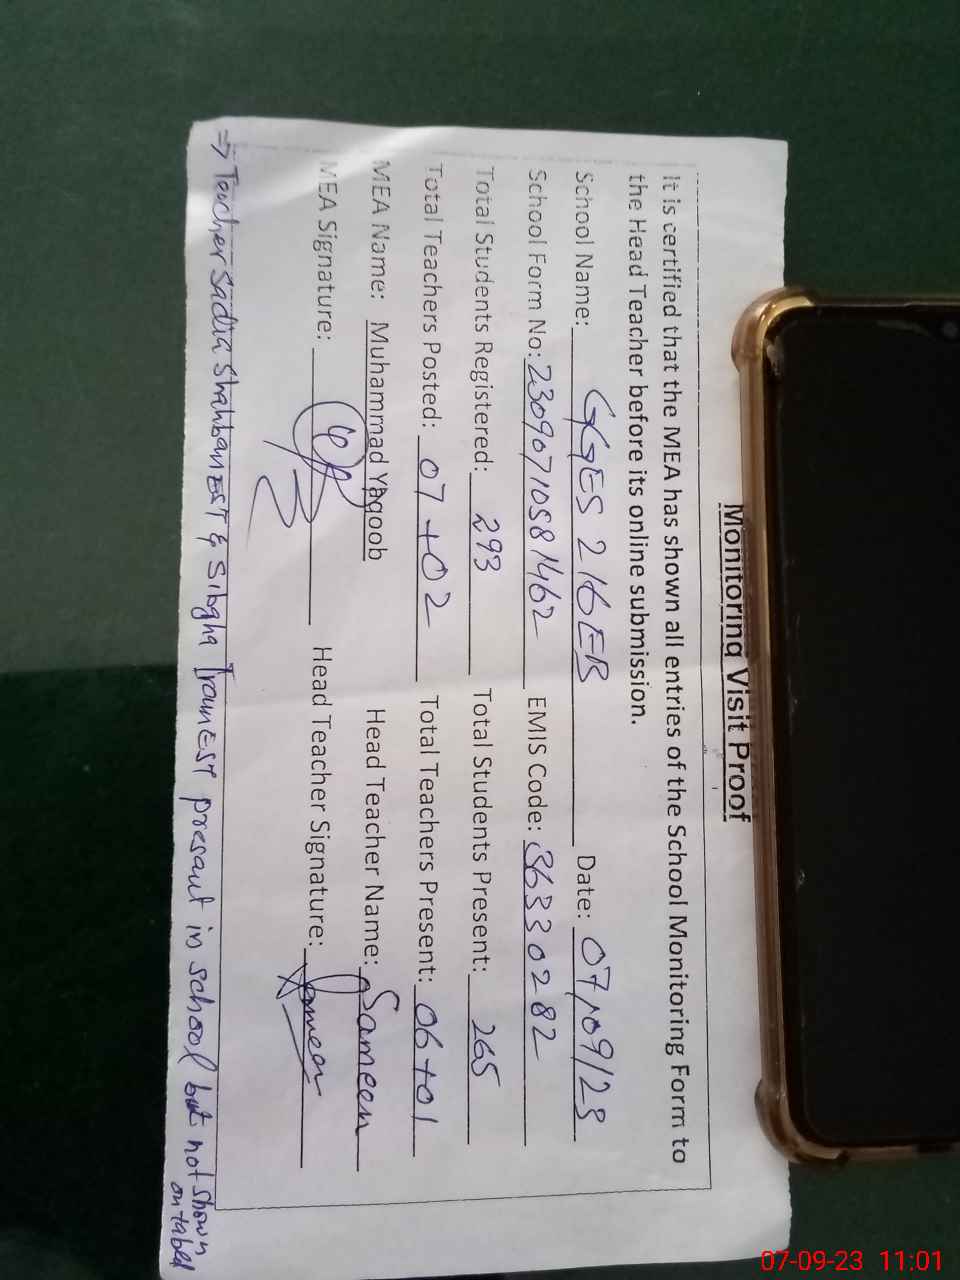 Monitoring Visit Proof
It is certified that the MEA has shown all entries of the School Monitoring Form to
the Head Teacher before its online submission.
School Name: GGES 216 EB Date: 07/09/23
School Form No: 23090710581462 EMIS Code: 36330282
Total Students Registered: 293 Total Students Present: 265
Total Teachers Posted: 07+02 Total Teachers Present: 06+01
MEA Name: Muhammad Yaqoob Head Teacher Name: Sameen
MEA Signature: Head Teacher Signature: Sameen
=> Teacher Sadia Shahbaz EST & Sibgha Iram EST presant in school but not shown
on tabled
07-09-23 11:01